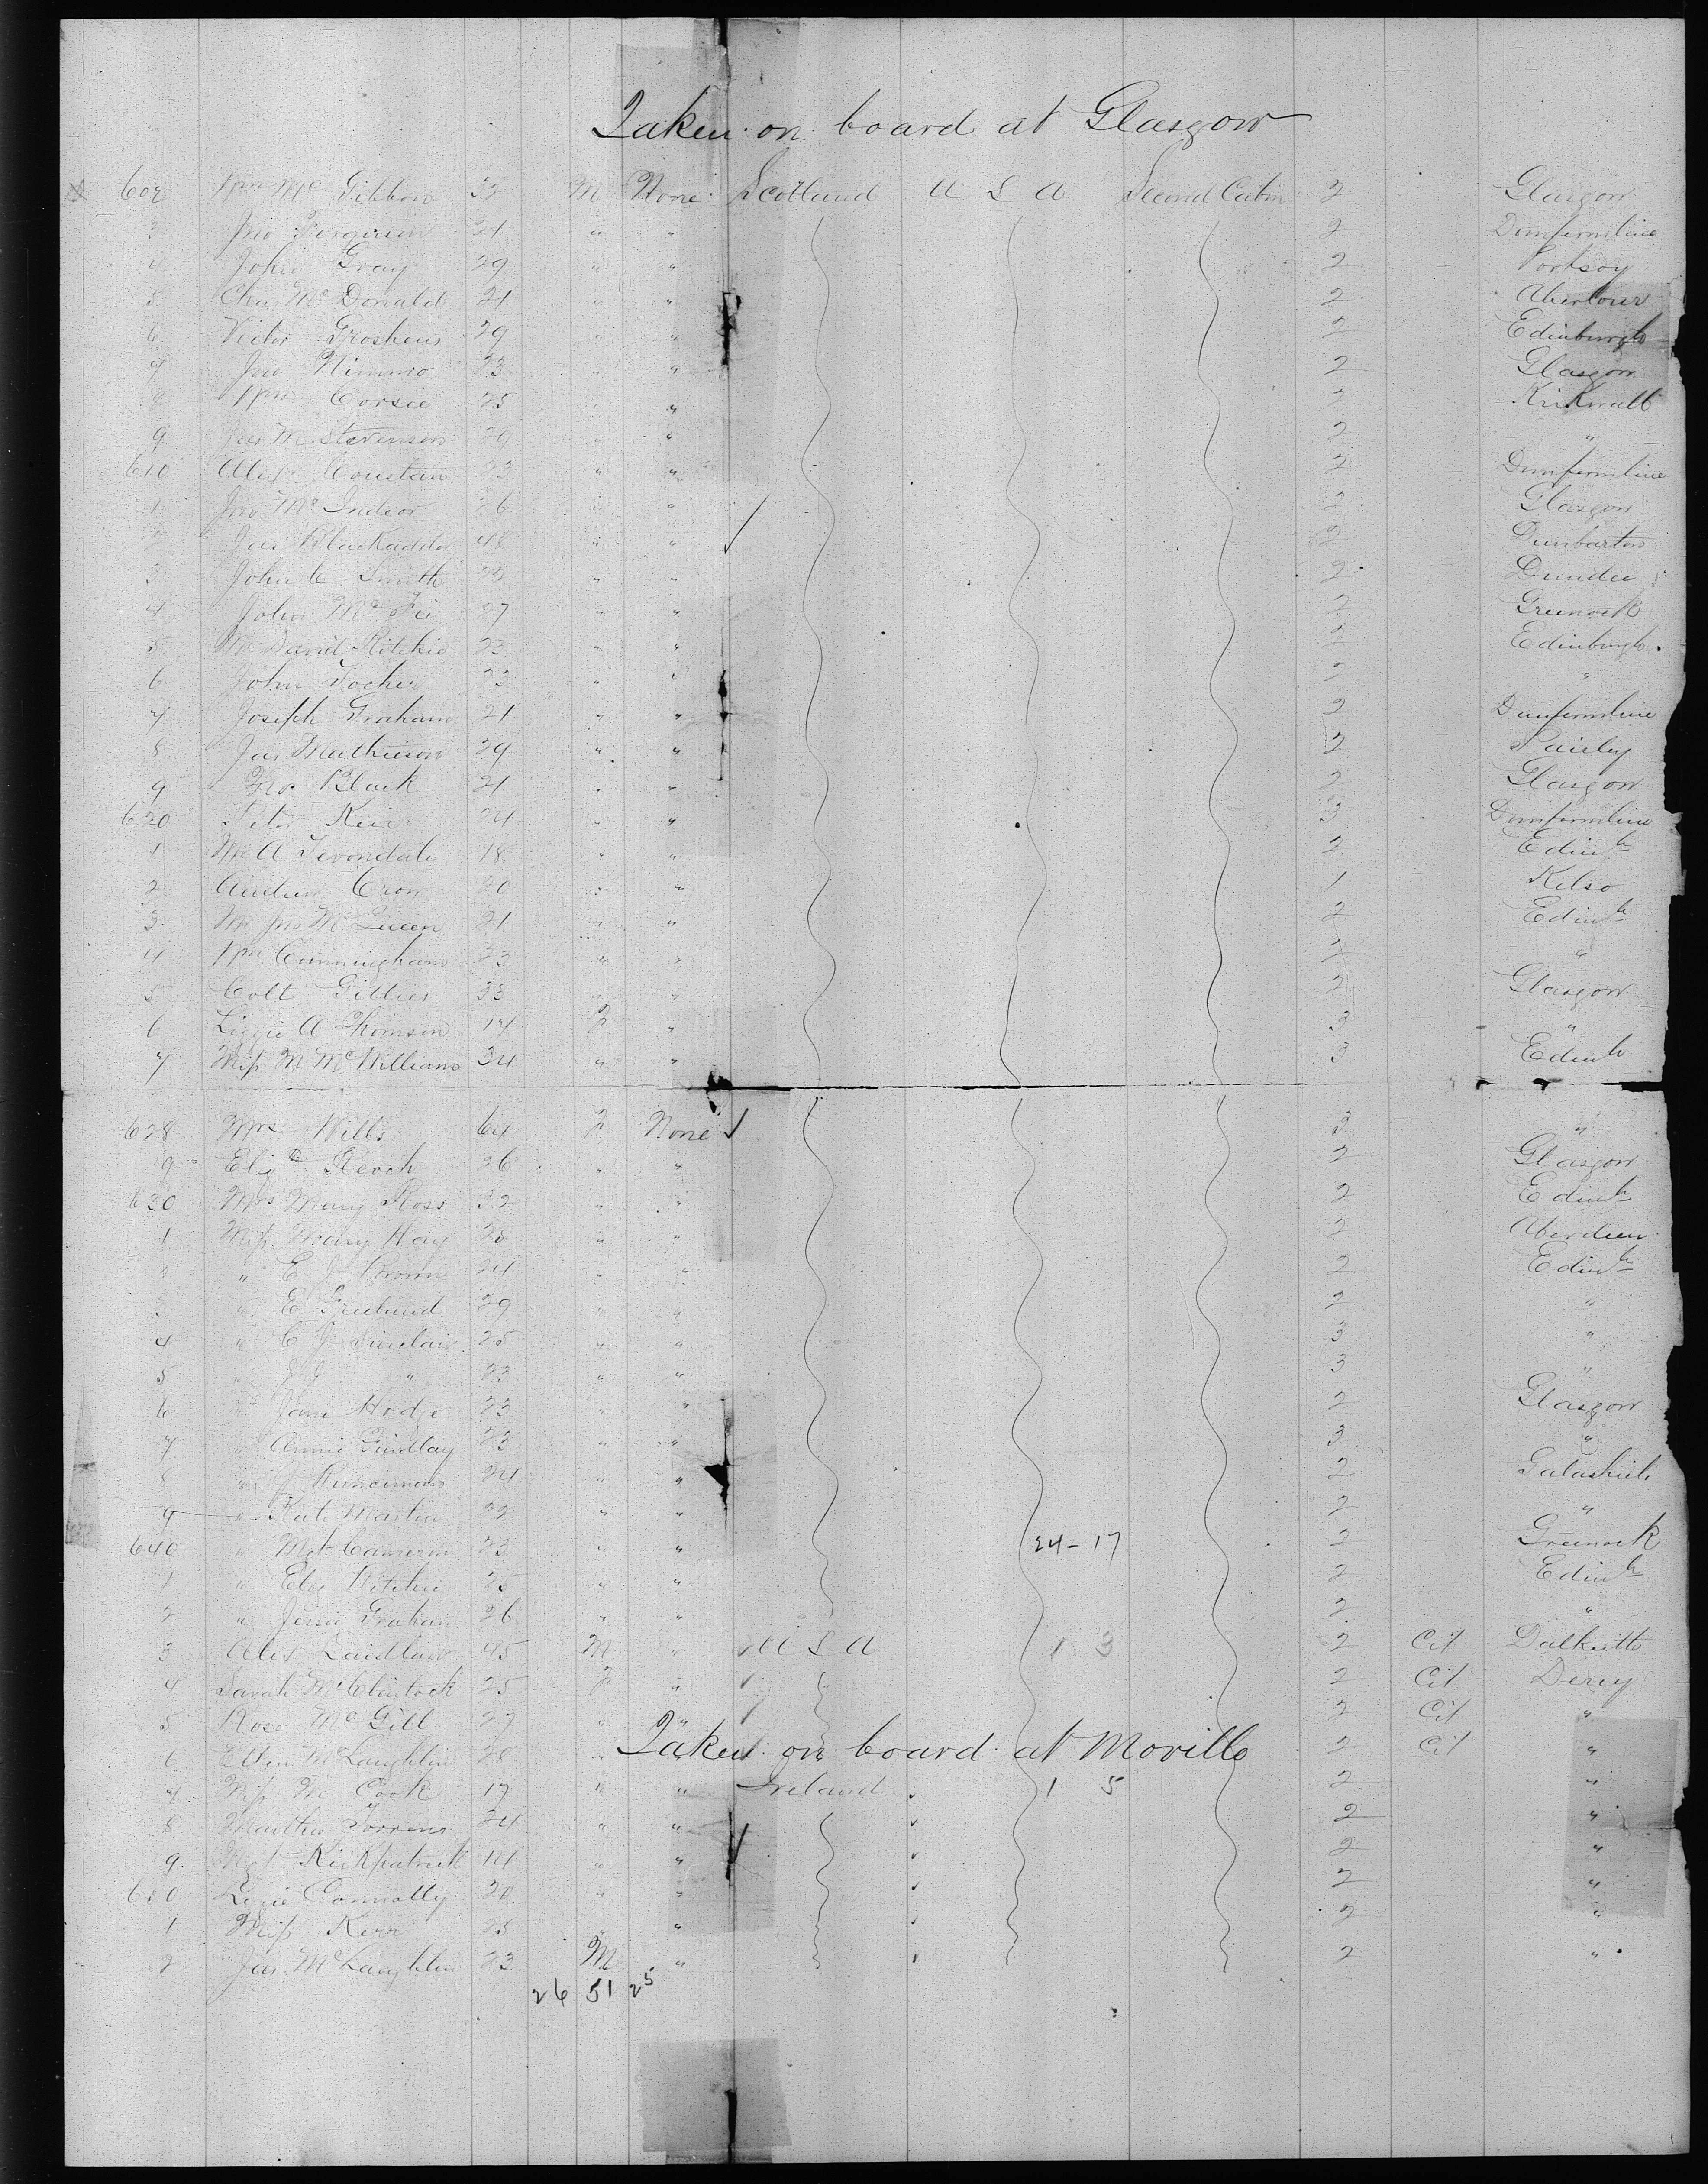 Taken on board at Glasgow
602 Wm McGibbon 32 M None Scotland U S A Second Cabin 2 Glasgow
3 Jno Ferguson 21 " " 2 Dunfermline
4 John Gray 29 " " 2 Portsoy
5 Chas McDonald 21 " " 2 Aberlour
6 Victor Groshens 29 " " 2 Edinburgh
7 Jno Nimmo 23 " " 2 Glasgow
8 Wm Corsie 25 " " 2 Kirkwall
9 Jas M Stevenson 29 " " 2 "
610 Alex 23 " " 2 Dunfermline
1 Jno McIndeor 26 " " 2 Glasgow
2 Jas Blackadder 48 " " 2 Dunbarton
3 John C Smith 23 " " 2 Dundee
4 John McFie 27 " " 2 Greenock
5 Mr David Ritchie 23 " " 2 Edinburgh
6 John Tocher 23 " " 2 "
7 Joseph Graham 21 " " 2 Dunfermline
8 Jas Mathieson 29 " " 2 Paisley
9 Black 21 " " 2 Glasgow
620 Peter Keir 24 " " 3 Dunfermline
1 Mr A Tevendale 18 " " 2 Edinh
2 Andrew Crow 20 " " 1 Kelso
3 Mr Jno McQueen 21 " " 2 Edinh
4 Wm Cunningham 23 " " 2 "
5 Colt Gillies 33 " " 2 Glasgow
6 Lizzie A Thomson 14 F " 3 "
7 Miss M McWilliams 34 " " 3 Edinh
628 Mrs Wills 64 F None 3 "
9 Elizth Reoch 26 " " 2 Glasgow
630 Mrs Mary Ross 32 " " 2 Edinh
1 Miss Mary Hay 25 " " 2 Aberdeen
2 " E J Brown 24 " " 2 Edinh
3 " E Freeland 29 " " 2 "
4 " C J Sinclair 25 " " 3 "
5 " J J " 23 " " 3 "
6 " Jane Hodge 23 " " 2 Glasgow
7 " Annie Findlay 23 " " 3 "
8 " J Runciman 24 " " 2 Galashiels
9 " Kate Martin 22 " " 2 "
640 " Mgt Cameron 23 " " 24-17 2 Greenock
1 " Eliz Ritchie 25 " " 2 Edinh
2 " Jessie Graham 26 " " 2 "
3 Alex Laidlaw 45 M " U S A 1 3 2 Cit Dalkeith
4 Sarah McClintock 25 F " 2 Cit Derry
5 Rose McGill 27 " " 2 Cit "
6 Ellen McLaughlin 28 " " 2 Cit "
Taken on board at Moville
7 Miss M Cook 17 " " Ireland 1 5 2 "
8 Martha Torrens 24 " " 2 "
9 Mgt Kirkpatrick 14 " " 2 "
650 Lizzie Connolly 20 " " 2 "
1 Miss Kerr 25 " " 2 "
2 Jas McLaughlin 23 M " 2 "
26 51 25